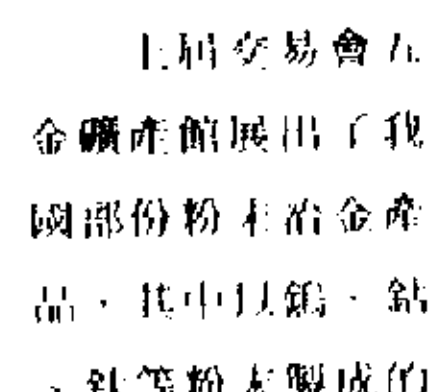 上屆交易會五
金礦產館展出了我
國部份粉末冶金產
品，其中以鎢、鈷
、鈦等粉末製成的